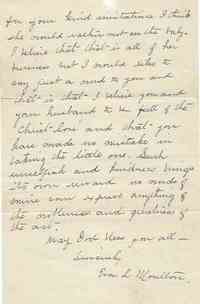 for your kind assistance I think
she would
I believe that that is all of her
business but I would like to
say just a word to you and
that is that I believe you and
your husband to be full of the
Christ-love and that you
have made no mistake in
taking the little one. Such
unselfish and kindness brings
its own reward no words of
mine can express anything of
the and greatness of
the act.
May God bless you all —
Sincerely,
L. Moulton.